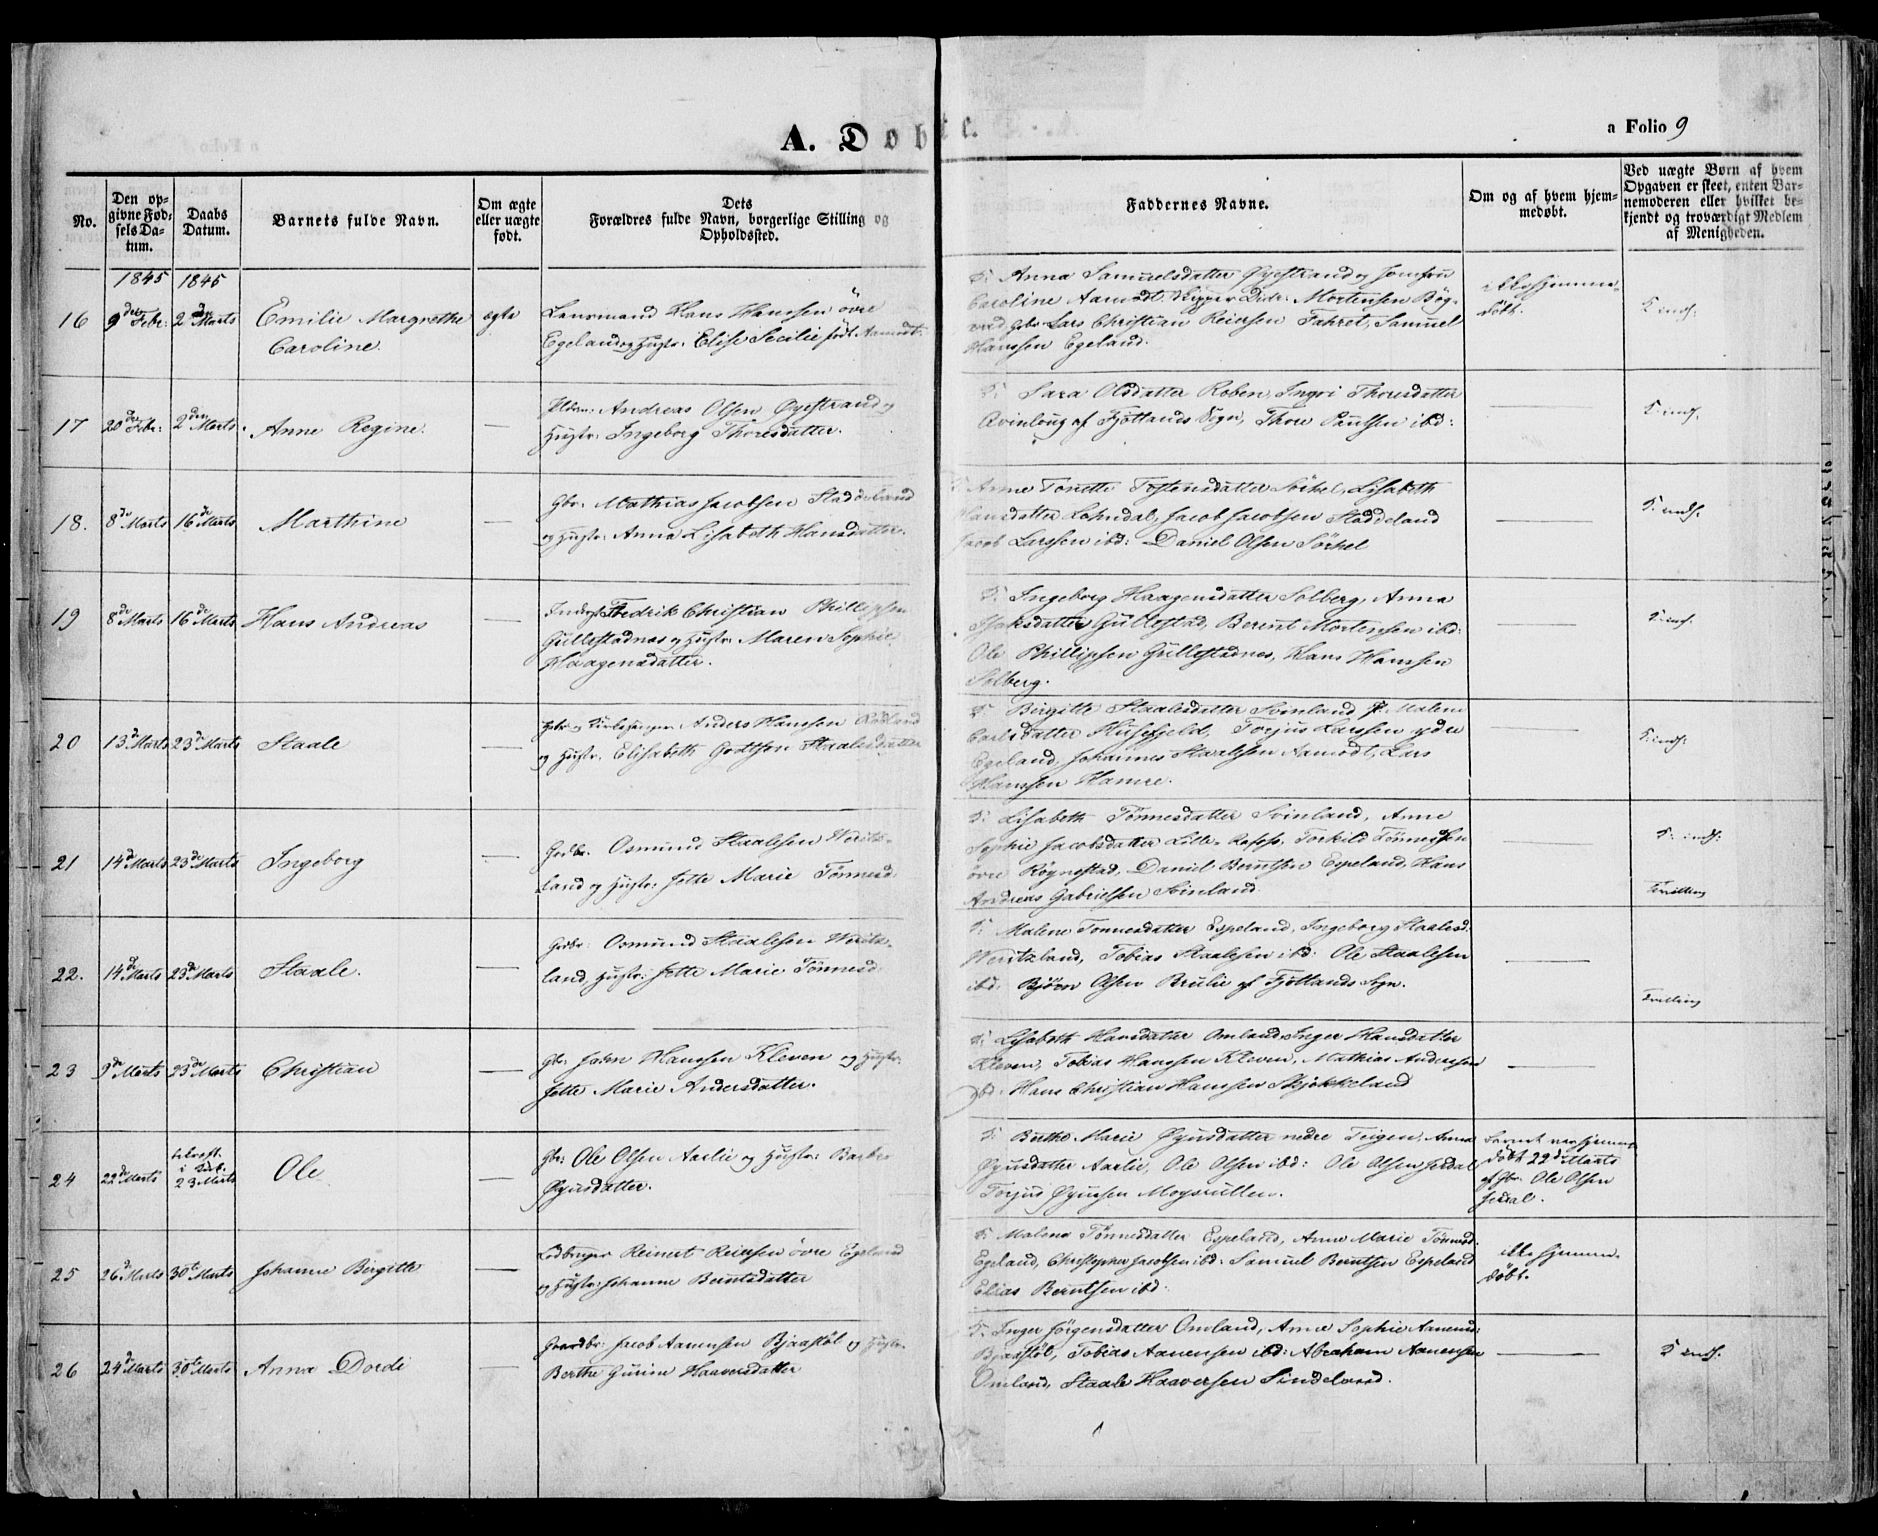 A. Døbte.
a Folio 9
No.
Den op-
givne Fød-
sels Da-
tum.
Daabs
Datum.
Barnets fulde Navn.
Om ægte
eller uægte
født.
Dets
Forældres fulde Navn, borgerlige Stilling og
Opholdssted.
Faddernes Navne.
Om og af hvem hjem-
medøbt.
Ved uægte Børn af hvem
Opgaven er skeet, enten Bar-
nemoderen eller hvilket be-
kjendt og troværdigt Medlem
af Menigheden.
1845 1845
16 9de Febr: 2den Marts Emilie Margrethe
Caroline.
ægte
Lensmand Hans Hanssen øvre
Egeland og Hustr: Elise Secilie født Aamodt.
F: Anna Samuelsdatter Øyestrand og Jomfru
Caroline Aamodt, Skipper Didr: Mortensen Bøg-
vad, Gbr. Lars Christian Reiersen Fahret, Samuel
Hanssen Egeland.
ikke hjemme-
døbt.
T. indf:
17 20de Febr: 2den Marts. Anne Regine. —
Andreas Olsen Øyestrand og
Hustr: Ingeborg Thoresdatter.
F: Sara Olsdatter Roben, Ingri Thoresdatter
Qvinlaug af Fjotlands Sogn, Thore Paulsen ibd:
—
T: indf.
18. 8de Marts 16de Marts Marthine —
Gbr: Mathias Jacobsen Staddeland
og Hustr: Anna Lisabeth Hansdatter.
Anne Tonette Tostensdatter Sørhel, Lisabeth
Hansdatter Lohndal, Jacob Jacobsen Staddeland
Jacob Larssen ibd: Daniel Olsen Sörhel
—
T: indf:
19 8de Marts 16de Marts Hans Andreas —
Fredrik Christian Phillipsen
Gullestadnes og Hustr: Maren Sophie
Haagensdatter.
F: Ingeborg Haagensdatter Solberg, Anna
Gullestad, Berent Mortensen ibd:
Ole Phillipsen Gullestadnes, Hans Hanssen
Solberg.
—
T: indf.
20 13de Marts 23de Marts Staale —
Gbr og Kirkesanger Anders Hanssen Rødland
og Hustr. Elisabeth Godtson Staalesdatter
F: Birgitte Staalesdatter Svinland, Malene
Carlsdatter Husefjeld, Torjus Larssen ydre
Egeland, Johannes Staalesen Aamodt, Lars
Hanssen Hamre.
—
T: indf:
21 14de Marts 23de Marts Ingeborg —
Grdbr. Osmund Staalesen Werits-
land og Hustr: Jette Marie Tønnesd.
F: Lisabeth Tönnesdatter Svinland, Anne
Sophie Jacobsdatter Lille- Torkild Tönnessen
övre Røynestad, Daniel Berntsen Espeland, Hans
Andreas Gabrielsen Svinland.
—
T: indf:
Tvilling
22. 14de Marts 23de Marts Staale. —
Grdbr: Osmund Staalesen Werits-
land, Hustr: Jette Marie Tönnesd.
F: Malene Tonnesdatter Espeland, Ingeborg Staalesd.
Weritzland, Tobias Staalesen ibd: Ole Staalesen
ibd: Bjørn Olsen Brulie af Fjotlands Sogn.
—
Tvilling
23 9de Marts 23de Marts Christian —
Gbr: John Hanssen Kleven og Hustr:
Jette Marie Andersdatter.
F: Lisabeth Hansdatter Omland, Inger Hansdatter
Kleven, Tobias Hanssen Kleven, Mathias Anderssen
ibd: Hans Christian Hanssen Skjekkeland
—
24 22de Marts bekræft.
i Kirk.
23 Marts
Ole —
Gbr: Ole Olsen Aarlie og Hustr: Barbro
Øyusdatter.
F: Berthe Marie Øyusdatter nedre Teigen, Anna
Øyusdatter Aarlie, Ole Olsen ibd: Ole Olsen Jerdal
Torjus Øyusen Moysrullen.
Barnet var hjemme-
døbt 22de Marts
af Gbr: Ole Olsen
Jerdal.
25 26de Marts 30te Marts Johanne Birgitte —
Reinert Reiersen övre Egeland
og Hustr: Johanne Berntsdatter
F: Malene Tønnesdatter Espeland, Anne Marie Tønnesd.
Egeland, Christopher Jacobsen ibd: Samuel Berntsen Espeland
Elias Berntsen ibd:
ikke hjemme-
døbt.
26 24de Marts 30te Marts Anna Dordi —
Gaardbr: Jacob Aanensen Bjaastöl og Hustr.
Berthe Gurine Haaversdatter
F: Inger Jörgensdatter Omland, Anne Sophie Aanensd:
Bjaastöl, Tobias Aanensen ibd: Abraham Aanensen
Omland, Staale Haaversen Sindeland.
—
T indf.